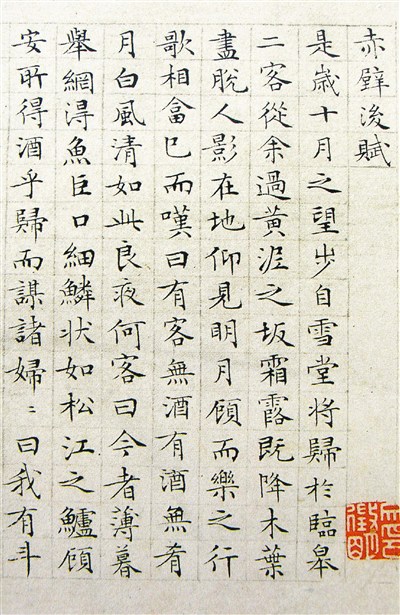 赤壁後賦
是歲十月之望步自雪堂將歸於臨皋
二客從余過黃泥之坂霜露既降木葉
盡脫人影在地仰見明月顧而樂之行
歌相畣已而嘆曰有客無酒有酒無肴
月白風清如此良夜何客曰今者薄暮
舉網得魚巨口細鱗狀如松江之鱸顧
安所得酒乎歸而謀諸婦〻曰我有斗